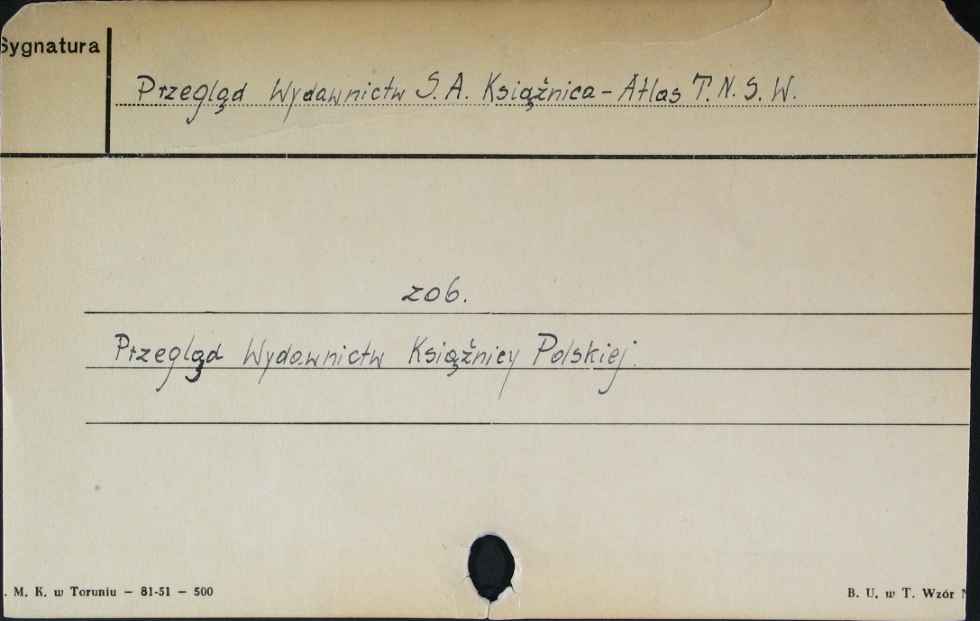 Sygnatura
Przegląd Wydawnictw S. A. Książnica - Atlas T. N. S. W.
zob.
Przegląd Wydawnictw Książnicy Polskiej.
. M. K. w Toruniu — 81-51 — 500
B. U. w T. Wzór